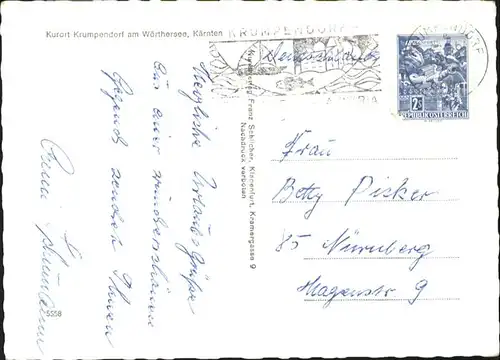 Kurort Krumpendorf am Wörthersee, Kärnten
KRUMPENDORF
Herzliche Urlaubsgrüße
aus einer wunderschönen
Gegend senden Ihnen
Verlag Franz Schilcher, Klagenfurt, Kramergasse 9
Nachdruck verboten
2S
REPUBLIK ÖSTERREICH
Frau
Betty Pisker
85 Nürnberg
Hagenstr. 9
5558